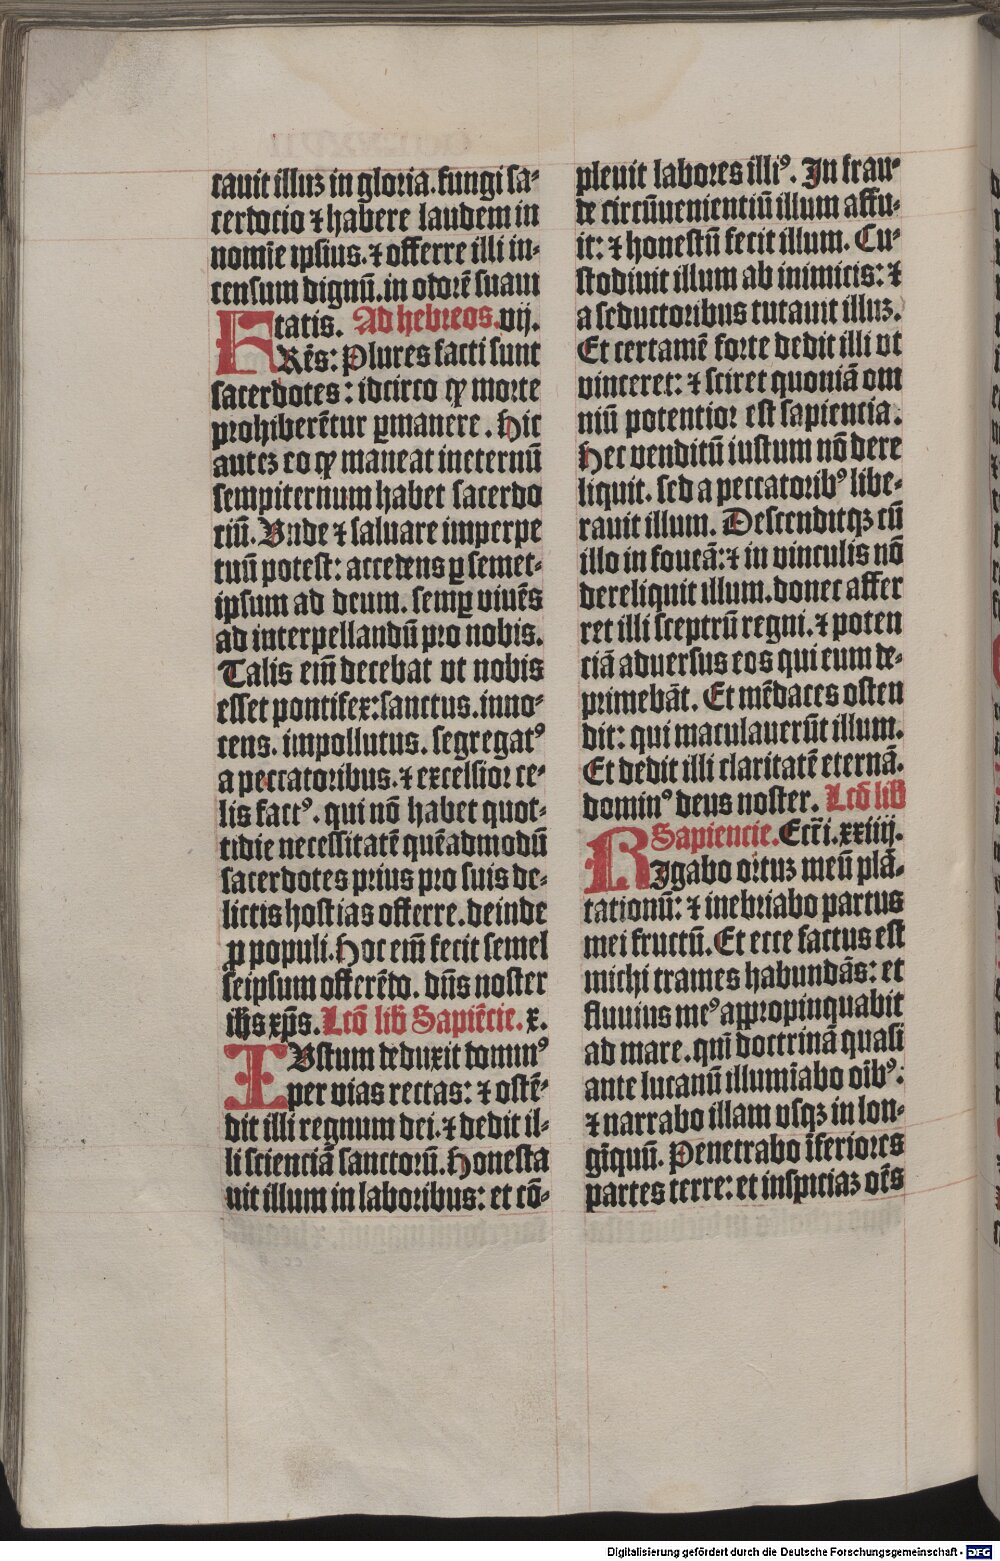 cauit illuz in gloria. fungi sa-
cerdocio ⁊ habere laudem in
nomīe ipsius. ⁊ offerre illi in-
censum dignū. in odorē suaui
tatis. Ad hebreos. vij.
FRēs: Plures facti sunt
sacerdotes: idcirco ꝙ morte
prohiberētur ꝑmanere. Hic
autez eo ꝙ maneat ineternū
sempiternum habet sacerdo
ciū. Vnde ⁊ saluare imperpe
tuū potest: accedens ꝑ semet-
ipsum ad deum. semꝑ viuēs
ad interpellandū pro nobis.
Talis eīm decebat vt nobis
esset pontifex: sanctus. inno-
cens. impollutus. segregatꝰ
a peccatoribus. ⁊ excelsior ce-
lis factꝰ. qui nō habet quot-
tidie necessitatē quēadmodū
sacerdotes prius pro suis de-
lictis hostias offerre. deinde
ꝓ populi. Hoc eīm fecit semel
seipsum offerēdo. dn̄s noster
ihs xp̄s. Lcō lib Sapiēcie. x.
IVstum deduxit dominꝰ
per vias rectas: ⁊ ostē-
dit illi regnum dei. ⁊ dedit il-
li scienciā sanctorū. Honesta
uit illum in laboribus: et cō-
pleuit labores illiꝰ. In frau-
de circūuenientiū illum affu-
it: ⁊ honestū fecit illum. Cu-
stodiuit illum ab inimicis: ⁊
a seductoribus tutauit illuz.
Et certamē forte dedit illi vt
vinceret: ⁊ sciret quoniā om
niū potentior est sapiencia.
Hec venditū iustum nō dere
liquit. sed a peccatoribꝰ libe-
rauit illum. Descenditqꝫ cū
illo in foueā: ⁊ in vinculis nō
dereliquit illum. donec affer
ret illi sceptrū regni. ⁊ poten
ciā aduersus eos qui eum de-
primebāt. Et mēdaces osten
dit: qui maculauerūt illum.
Et dedit illi claritatē eternā.
dominꝰ deus noster. Lcō lib
Sapiencie. Eccī. xxiiij.
RIgabo ortuz meū plā-
tationū: ⁊ inebriabo partus
mei fructū. Et ecce factus est
michi trames habundās: et
fluuius meꝰ appropinquabit
ad mare. qm̄ doctrinā quasi
ante lucanū illumīabo oībꝰ:
⁊ narrabo illam vsqꝫ in lon-
gīquū. Penetrabo īferiores
partes terre: et inspiciaz oēs
Digitalisierung gefördert durch die Deutsche Forschungsgemeinschaft - DFG